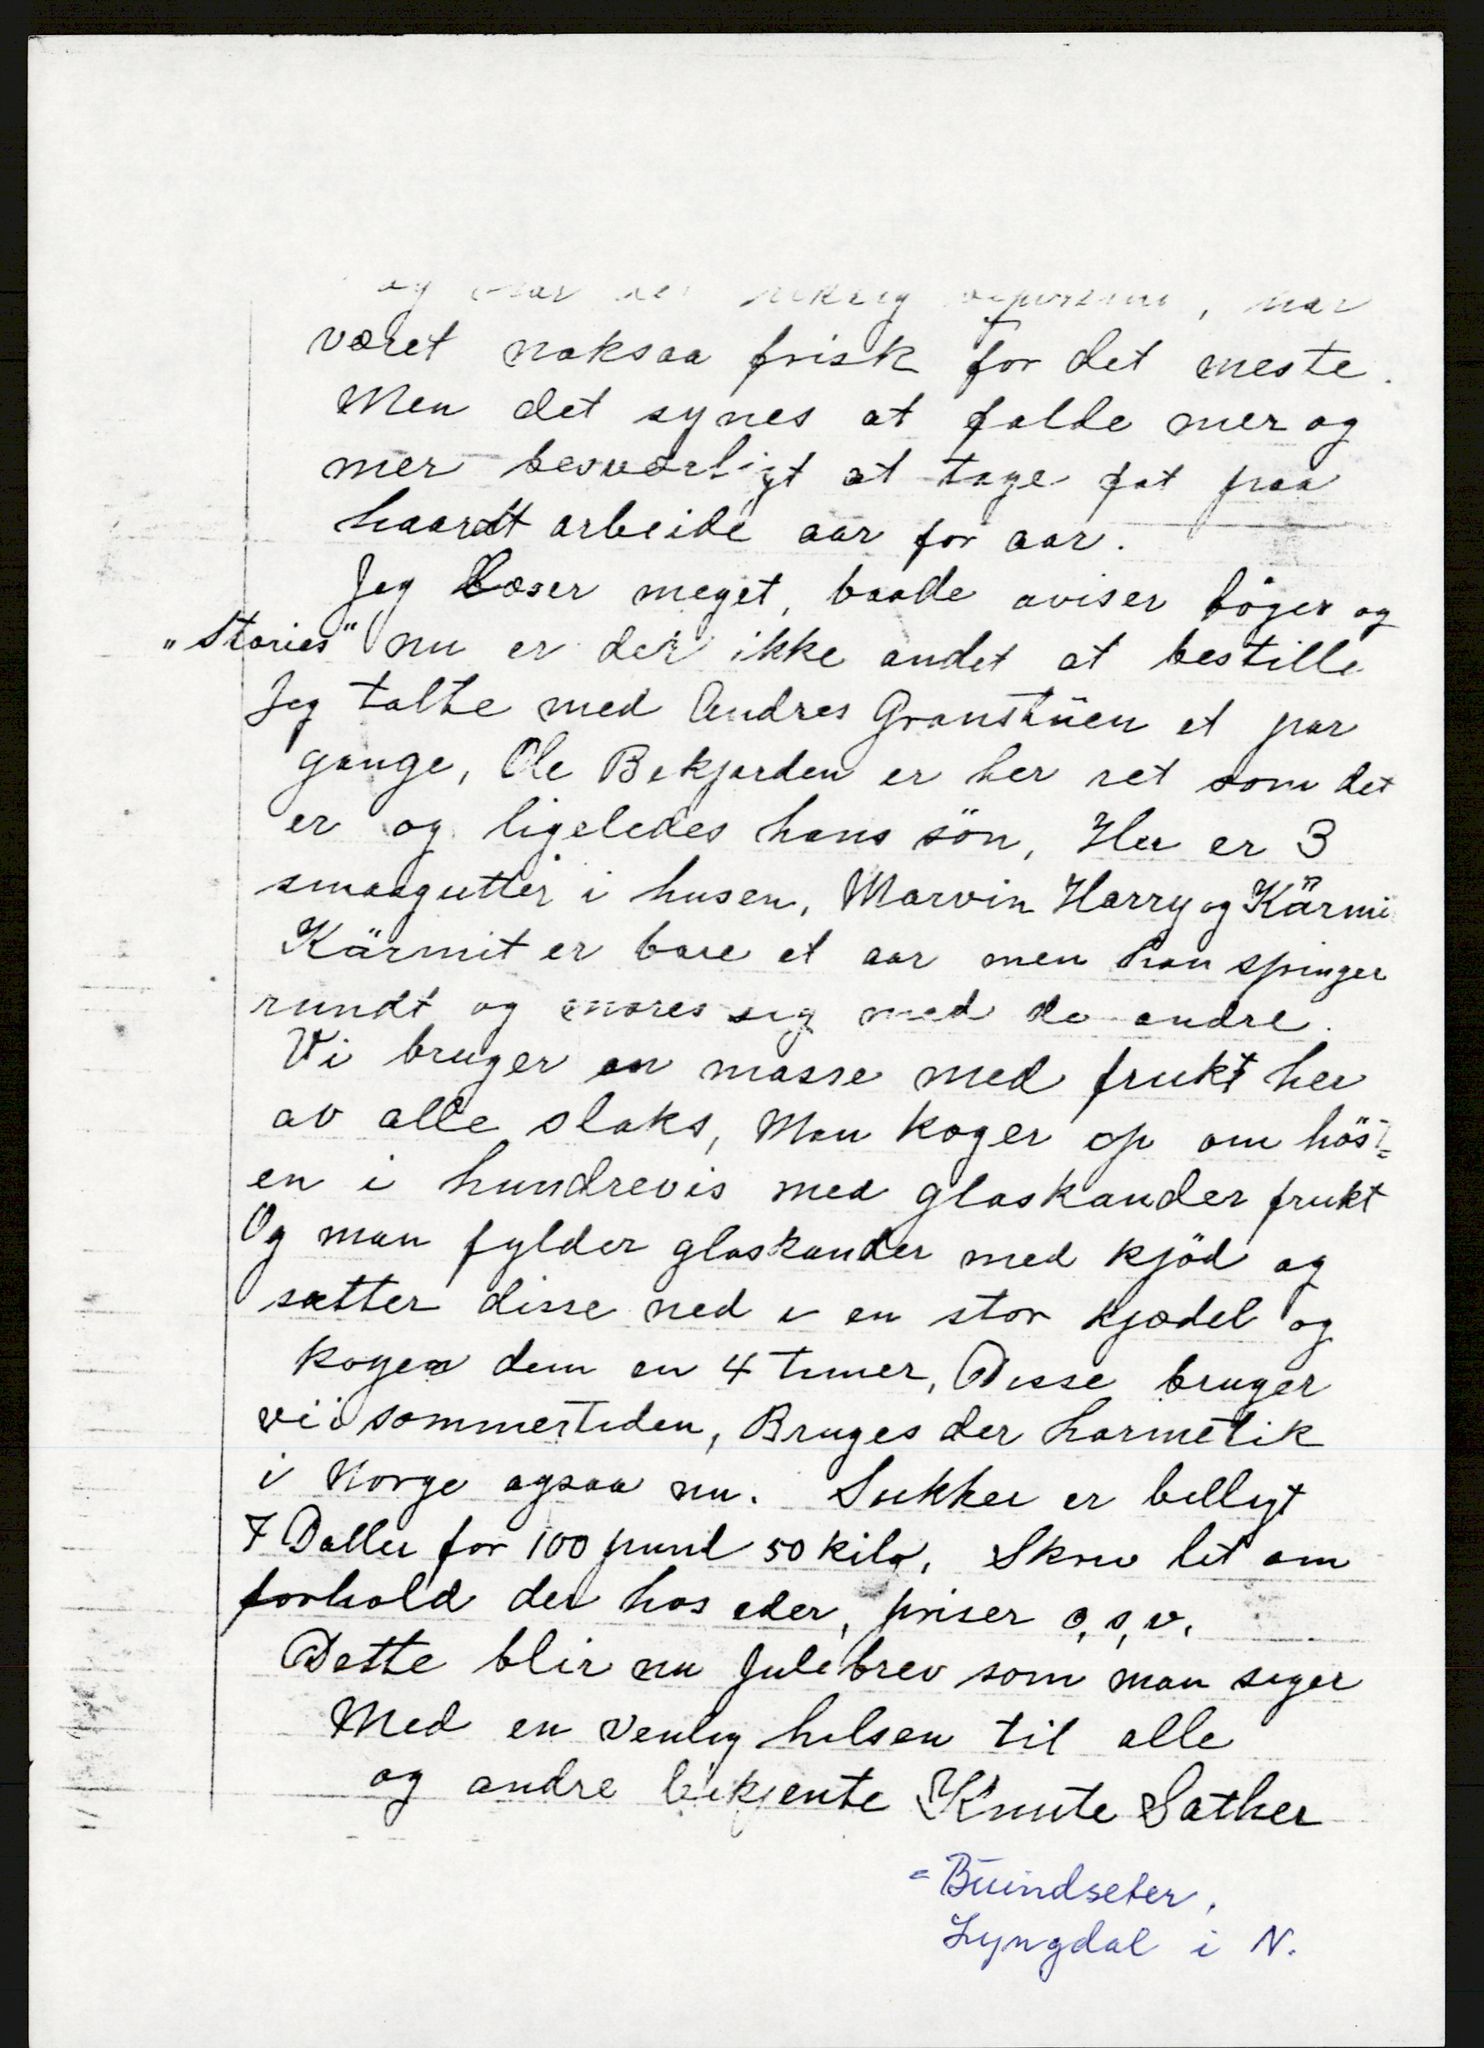 , har
været noksaa frisk for det meste.
Men det synes at falde mer og
mer besværligt at tage fat paa
haardt arbeide aar for aar.
Jeg Læser meget, baade aviser böger og
„Stories" nu er der ikke andet at bestille
Jeg talte med Andres Granstüen et par
gange, Ole Bekjorden er her ret som det
er og ligeledes hans sön, Her er 3
smaagutter i husen, Marvin Harry og Kärmi
Kärmit er bare et aar men han springer
rundt og mores sig med de andre.
Vi bruger en masse med frukt her
av alle slaks, Man koger op om höst=
en i hundrevis med glaskander frukt
Og man fylder glaskander med kjöd og
sætter disse ned i en stor kjædel og
koger dem en 4 timer, Disse bruger
vi i sommertiden, Bruges der harmetik
i Norge ogsaa nu. Sukker er billigt
7 Daller for 100 pund 50 kilo. Skriv lit om
forhold der hos eder, priser o,s,v,
Dette blir nu Julebrev som man siger
Med en venlig hilsen til alle
og andre bekjente Knute Sather
= Buindseter,
Lyngdal i N.